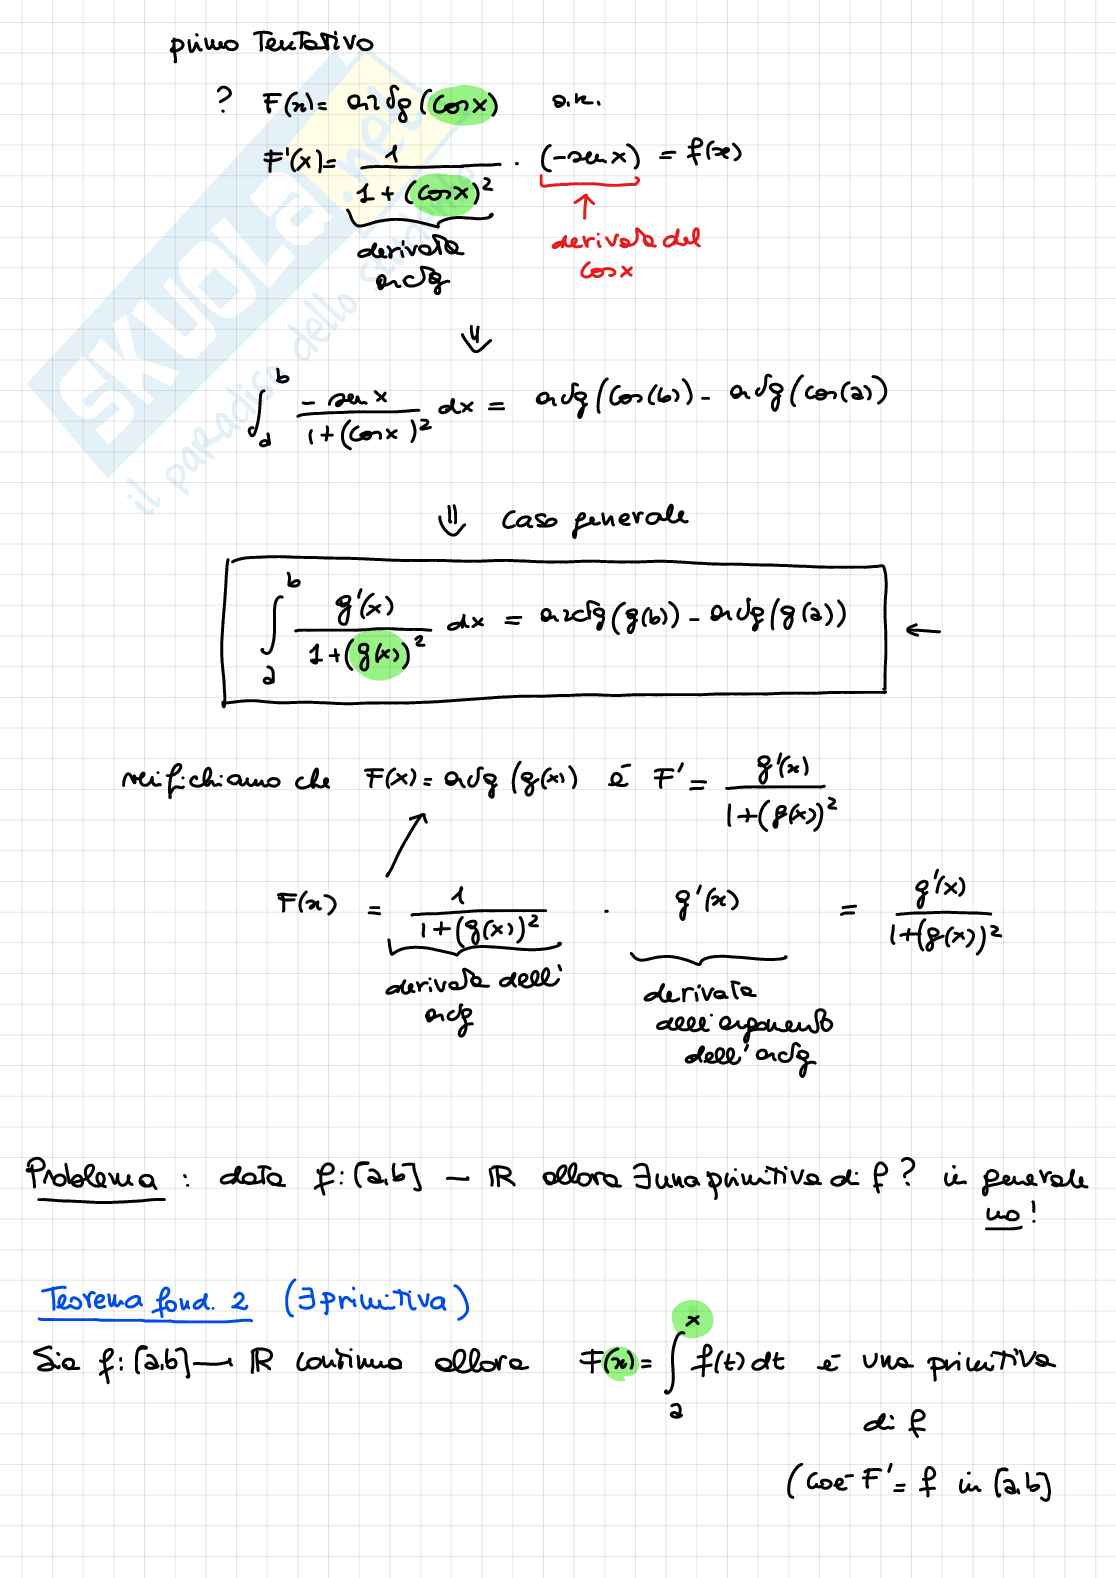 primo Tentativo
? F(x) = arctg (cosx) o.k.
F'(x) = 1 / 1 + (cosx)² · (-sen x) = f(x)
derivata arctg
derivata del cosx
⇓
∫ₐᵇ - sen x / 1 + (cosx)² dx = arctg (cos(b)) - arctg (cos(a))
⇓ Caso generale
∫ₐᵇ g'(x) / 1 + (g(x))² dx = arctg (g(b)) - arctg (g(a)) ←
verifichiamo che F(x) = arctg (g(x)) è F' = g'(x) / 1 + (g(x))²
F(x) = 1 / 1 + (g(x))² · g'(x) = g'(x) / 1 + (g(x))²
derivata dell'
arctg
derivata
dell'argomento
dell'arctg
Problema : data f: [a,b] — ℝ allora ∃ una primitiva di f ? in generale
no!
Teorema fond. 2 (∃ primitiva)
Sia f: [a,b] → ℝ continua allora F(x) = ∫ₐˣ f(t) dt è una primitiva
di f
(cioè F' = f in [a,b]
SKUOLA.net
il paradiso dello studente